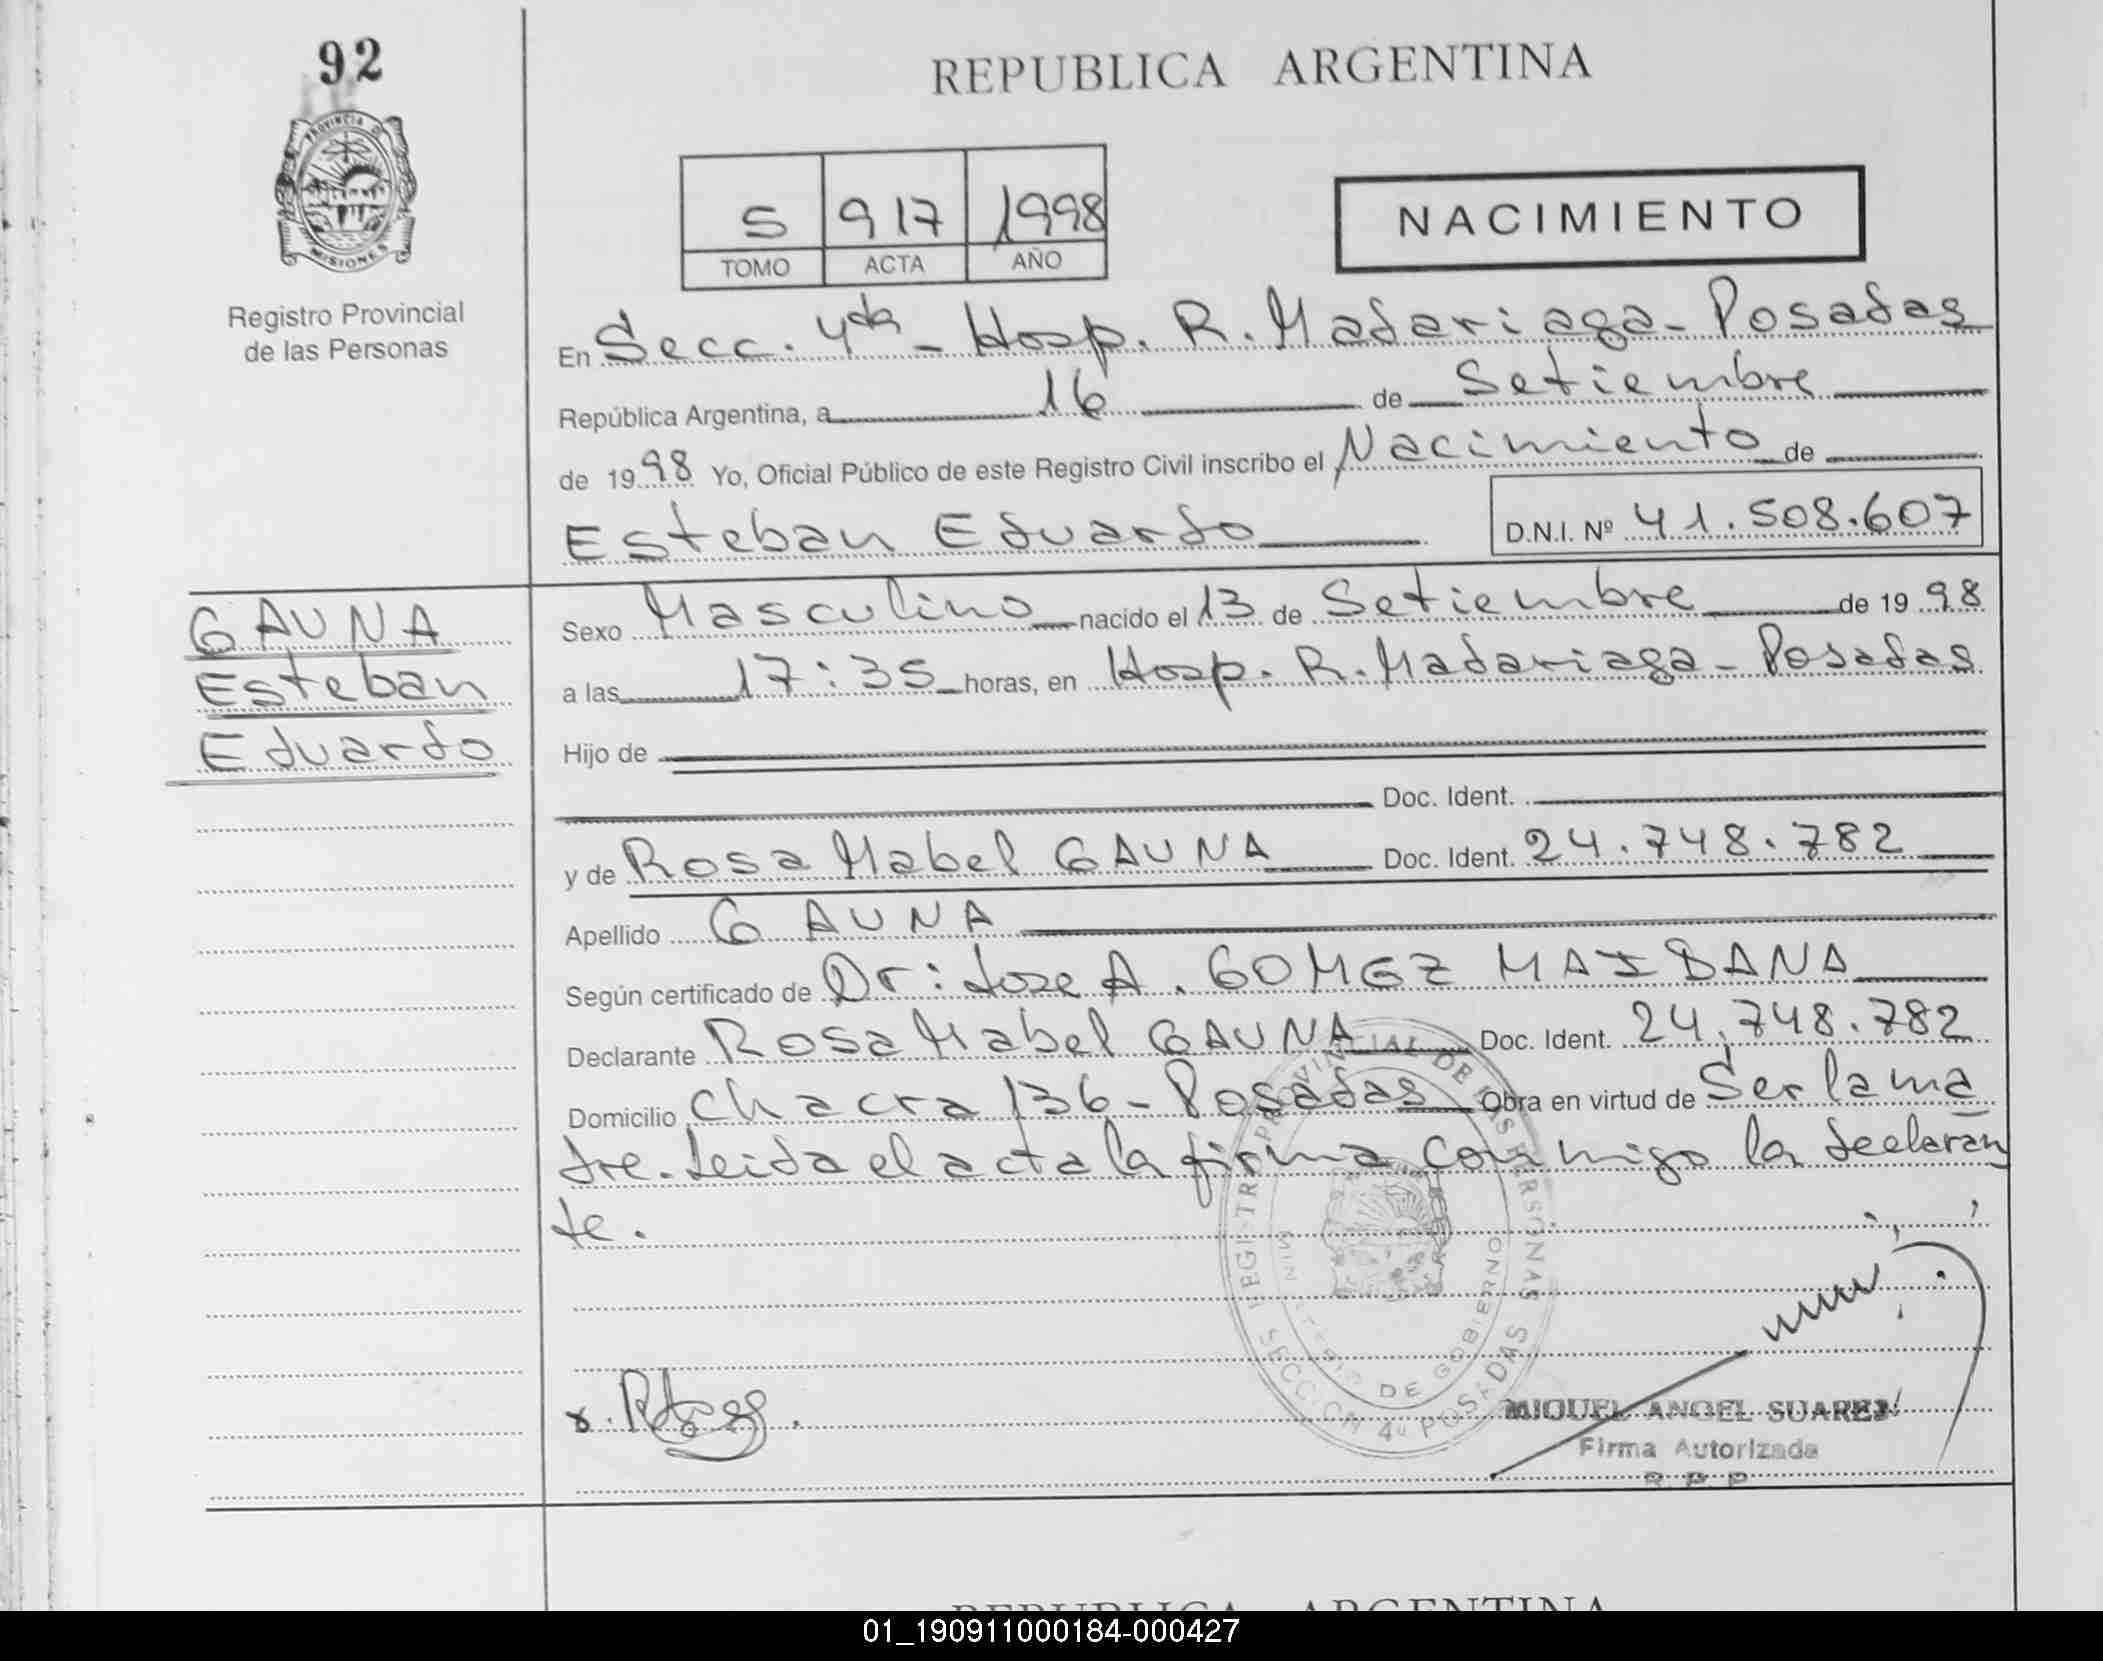 92
REPUBLICA ARGENTINA
PROVINCIA DE
MISIONES
Registro Provincial
de las Personas
5 917 1998
TOMO ACTA AÑO
NACIMIENTO
En Secc. 4ta - Hosp. R. Madariaga - Posadas
República Argentina, a 16 de Setiembre
de 1998 Yo, Oficial Público de este Registro Civil inscribo el Nacimiento de
Esteban Eduardo D.N.I. Nº 41.508.607
GAUNA
Esteban
Eduardo
Sexo Masculino nacido el 13 de Setiembre de 1998
a las 17:35 horas, en Hosp. R. Madariaga - Posadas
Hijo de
Doc. Ident.
y de Rosa Mabel GAUNA Doc. Ident. 24.748.782
Apellido GAUNA
Según certificado de Dr: Jose A. GOMEZ MAIDANA
Declarante Rosa Mabel GAUNA Doc. Ident. 24.748.782
Domicilio Chacra 136 - Posadas Obra en virtud de Ser la ma
dre. Leida el acta la firma conmigo la declaran
te.
REGISTRO PROVINCIAL DE LAS PERSONAS
MINISTERIO DE GOBIERNO
SECCION 4ª POSADAS
MIGUEL ANGEL SUAREZ
Firma Autorizada
R. P. P.
REPUBLICA ARGENTINA
01_190911000184-000427